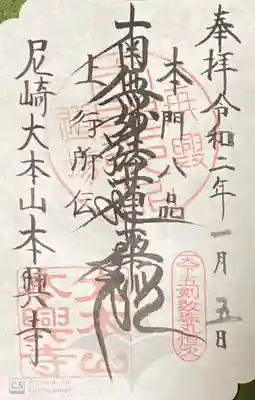 奉拝 令和二年一月五日
本門八品
南無妙法蓮華経
上行所伝
尼崎大本山本興寺
大本山
本興寺
CS